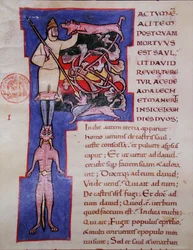 ACTUM E
AUTEM
POSTQUAM
MORTUUS
EST SAUL,
UT DAVID
REVERTERE
TUR A CEDE
AMALECH
ET MANERET
IN SICELEG DI
ES DUOS.
In die autem tercia apparuit
homo ueniens de castris saul
ueste conscissa, et puluere aspersus
caput. Et ut uenit ad dauid,
cecidit super faciem suam & adora
uit. Dixitq; ad eum dauid.
Unde uenis? Qui ait ad eum.
De castris isrl fugi. Et dixit ad eum
dauid. Quod est uerbum
quod factum est? Indica michi.
Qui ait. Fugit populus
corruentes e populo mor
tui sunt; Sed & saul & ionathas